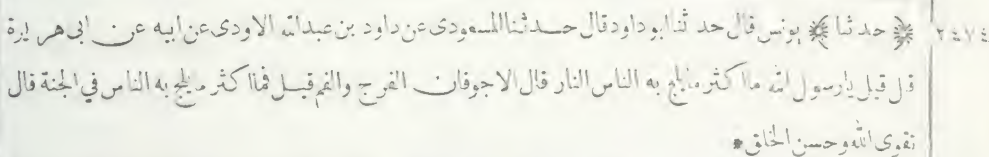 ٢٤٧٤ ﴿ حدثنا ﴾ يونس قال حدثنا ابو داود قال حدثنا المسعودى عن داود بن عبدالله الاودى عن ابيه عن ابى هريرة
قال قيل يارسول الله ما اكثر مايلج به الناس النار قال الاجوفان الفرج والفم قيل فما اكثر مايلج به الناس في الجنة قال
تقوى الله وحسن الخلق *